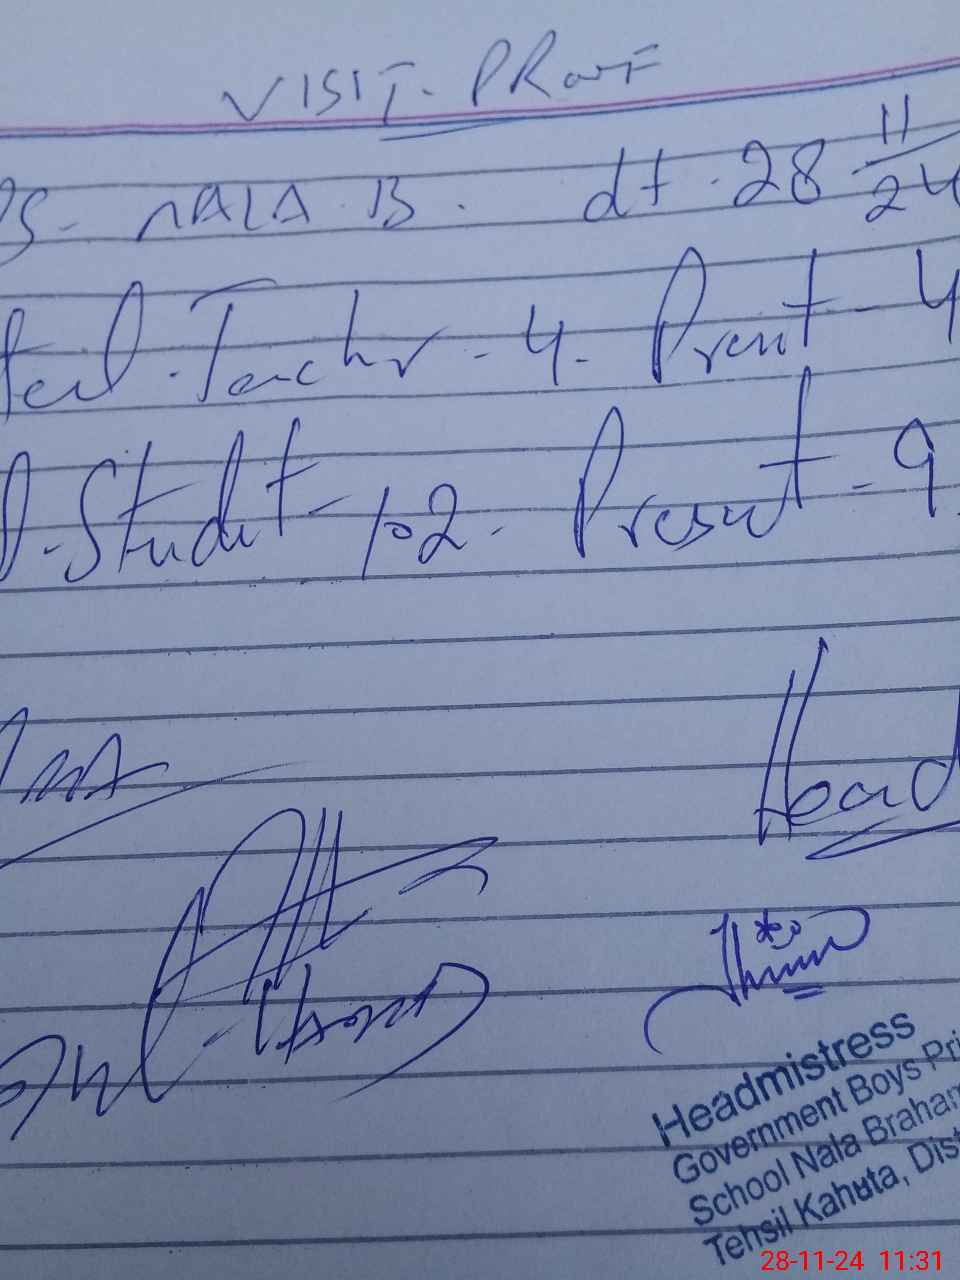 VISIT. PRooF
PS- NALA B. dt. 28 11/24
Teachr - 4. Present - 4
Studet - 102. Present - 9
Head
Headmistress
Government Boys Pri
School Nala Braham
Tehsil Kahuta, Dist
28-11-24 11:31